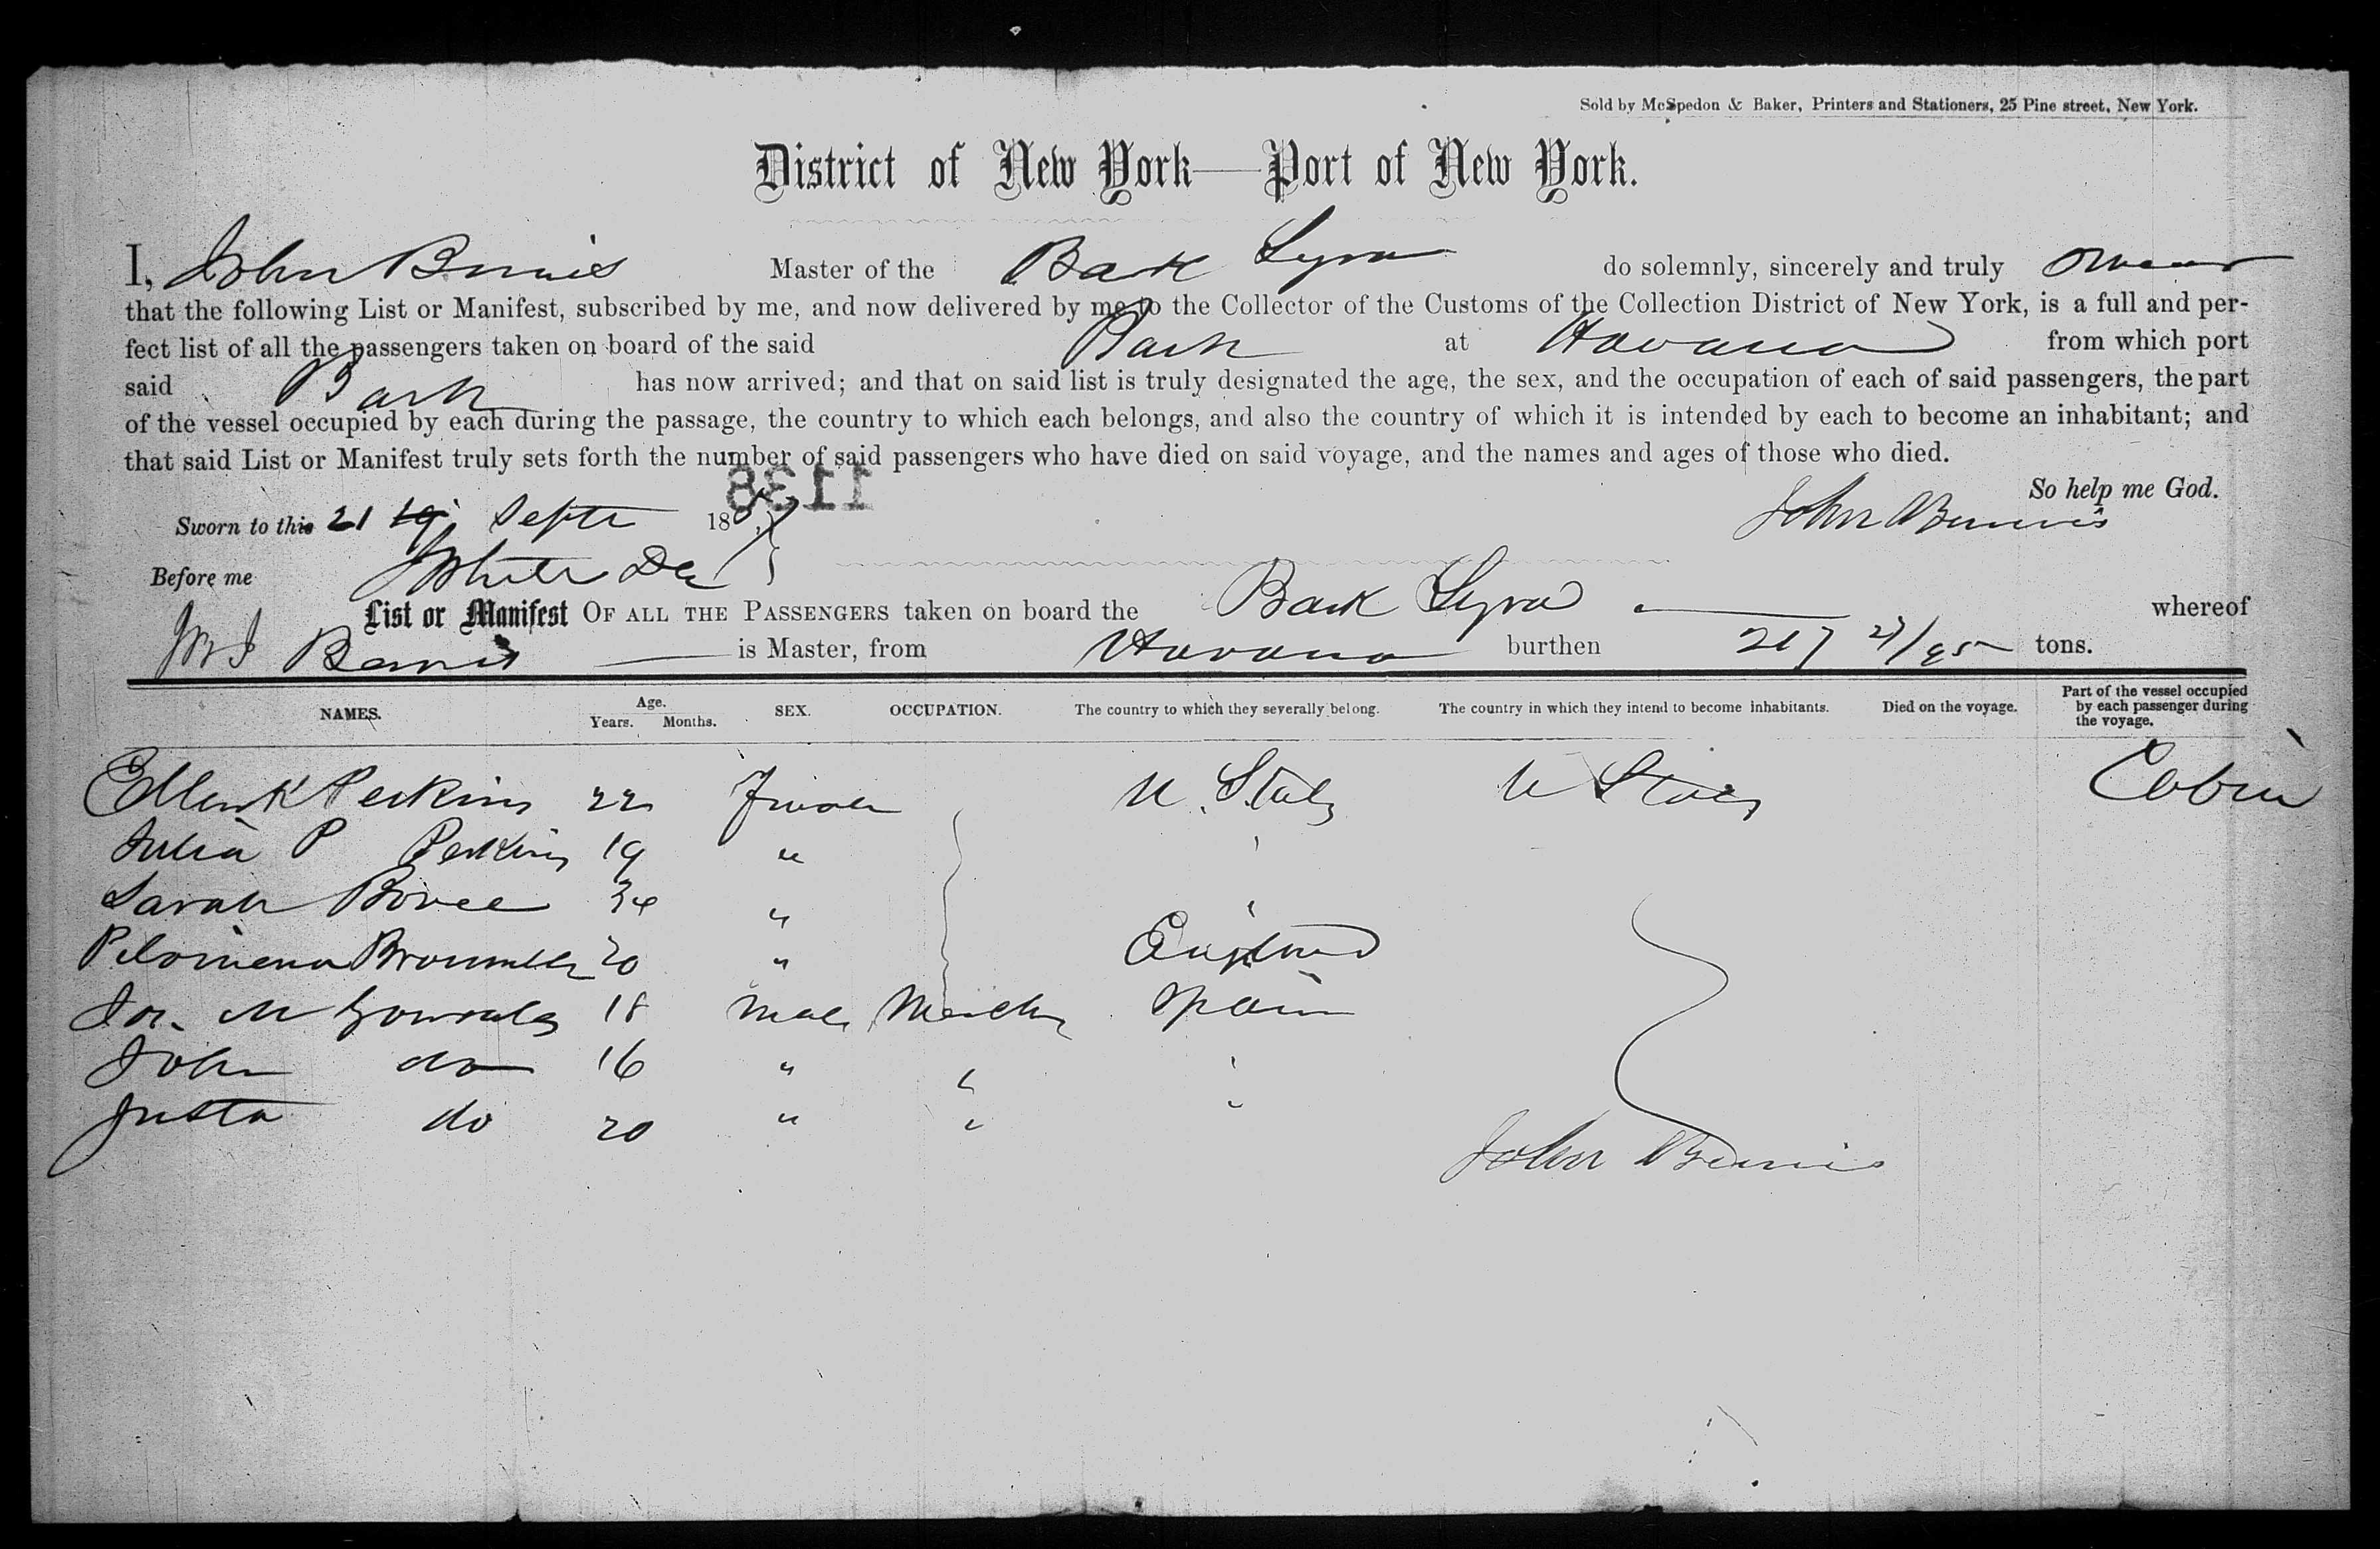 Sold by McSpedon & Baker, Printers and Stationers, 25 Pine street, New York.
District of New York—Port of New York.
I, John Master of the Bark Lyra do solemnly, sincerely and truly swear
that the following List or Manifest, subscribed by me, and now delivered by me to the Collector of the Customs of the Collection District of New York, is a full and per-
fect list of all the passengers taken on board of the said Bark at Havana from which port
said Bark has now arrived; and that on said list is truly designated the age, the sex, and the occupation of each of said passengers, the part
of the vessel occupied by each during the passage, the country to which each belongs, and also the country of which it is intended by each to become an inhabitant; and
that said List or Manifest truly sets forth the number of said passengers who have died on said voyage, and the names and ages of those who died.
1138
So help me God.
Sworn to this 21 Septr 185 John
Before me
List or Manifest OF ALL THE PASSENGERS taken on board the Bark Lyra whereof
is Master, from Havana burthen 217 /95 tons.
NAMES. Age. Years. Months. SEX. OCCUPATION. The country to which they severally belong. The country in which they intend to become inhabitants. Died on the voyage. Part of the vessel occupied by each passenger during the voyage.
Ellen K Perkins 22 U. States U States Cabin
Julia P Perkins 19 "
Sarah 34 "
20 " England
M Gonzales 18 Male Spain
John do 16 "
Justa do 20 "
John